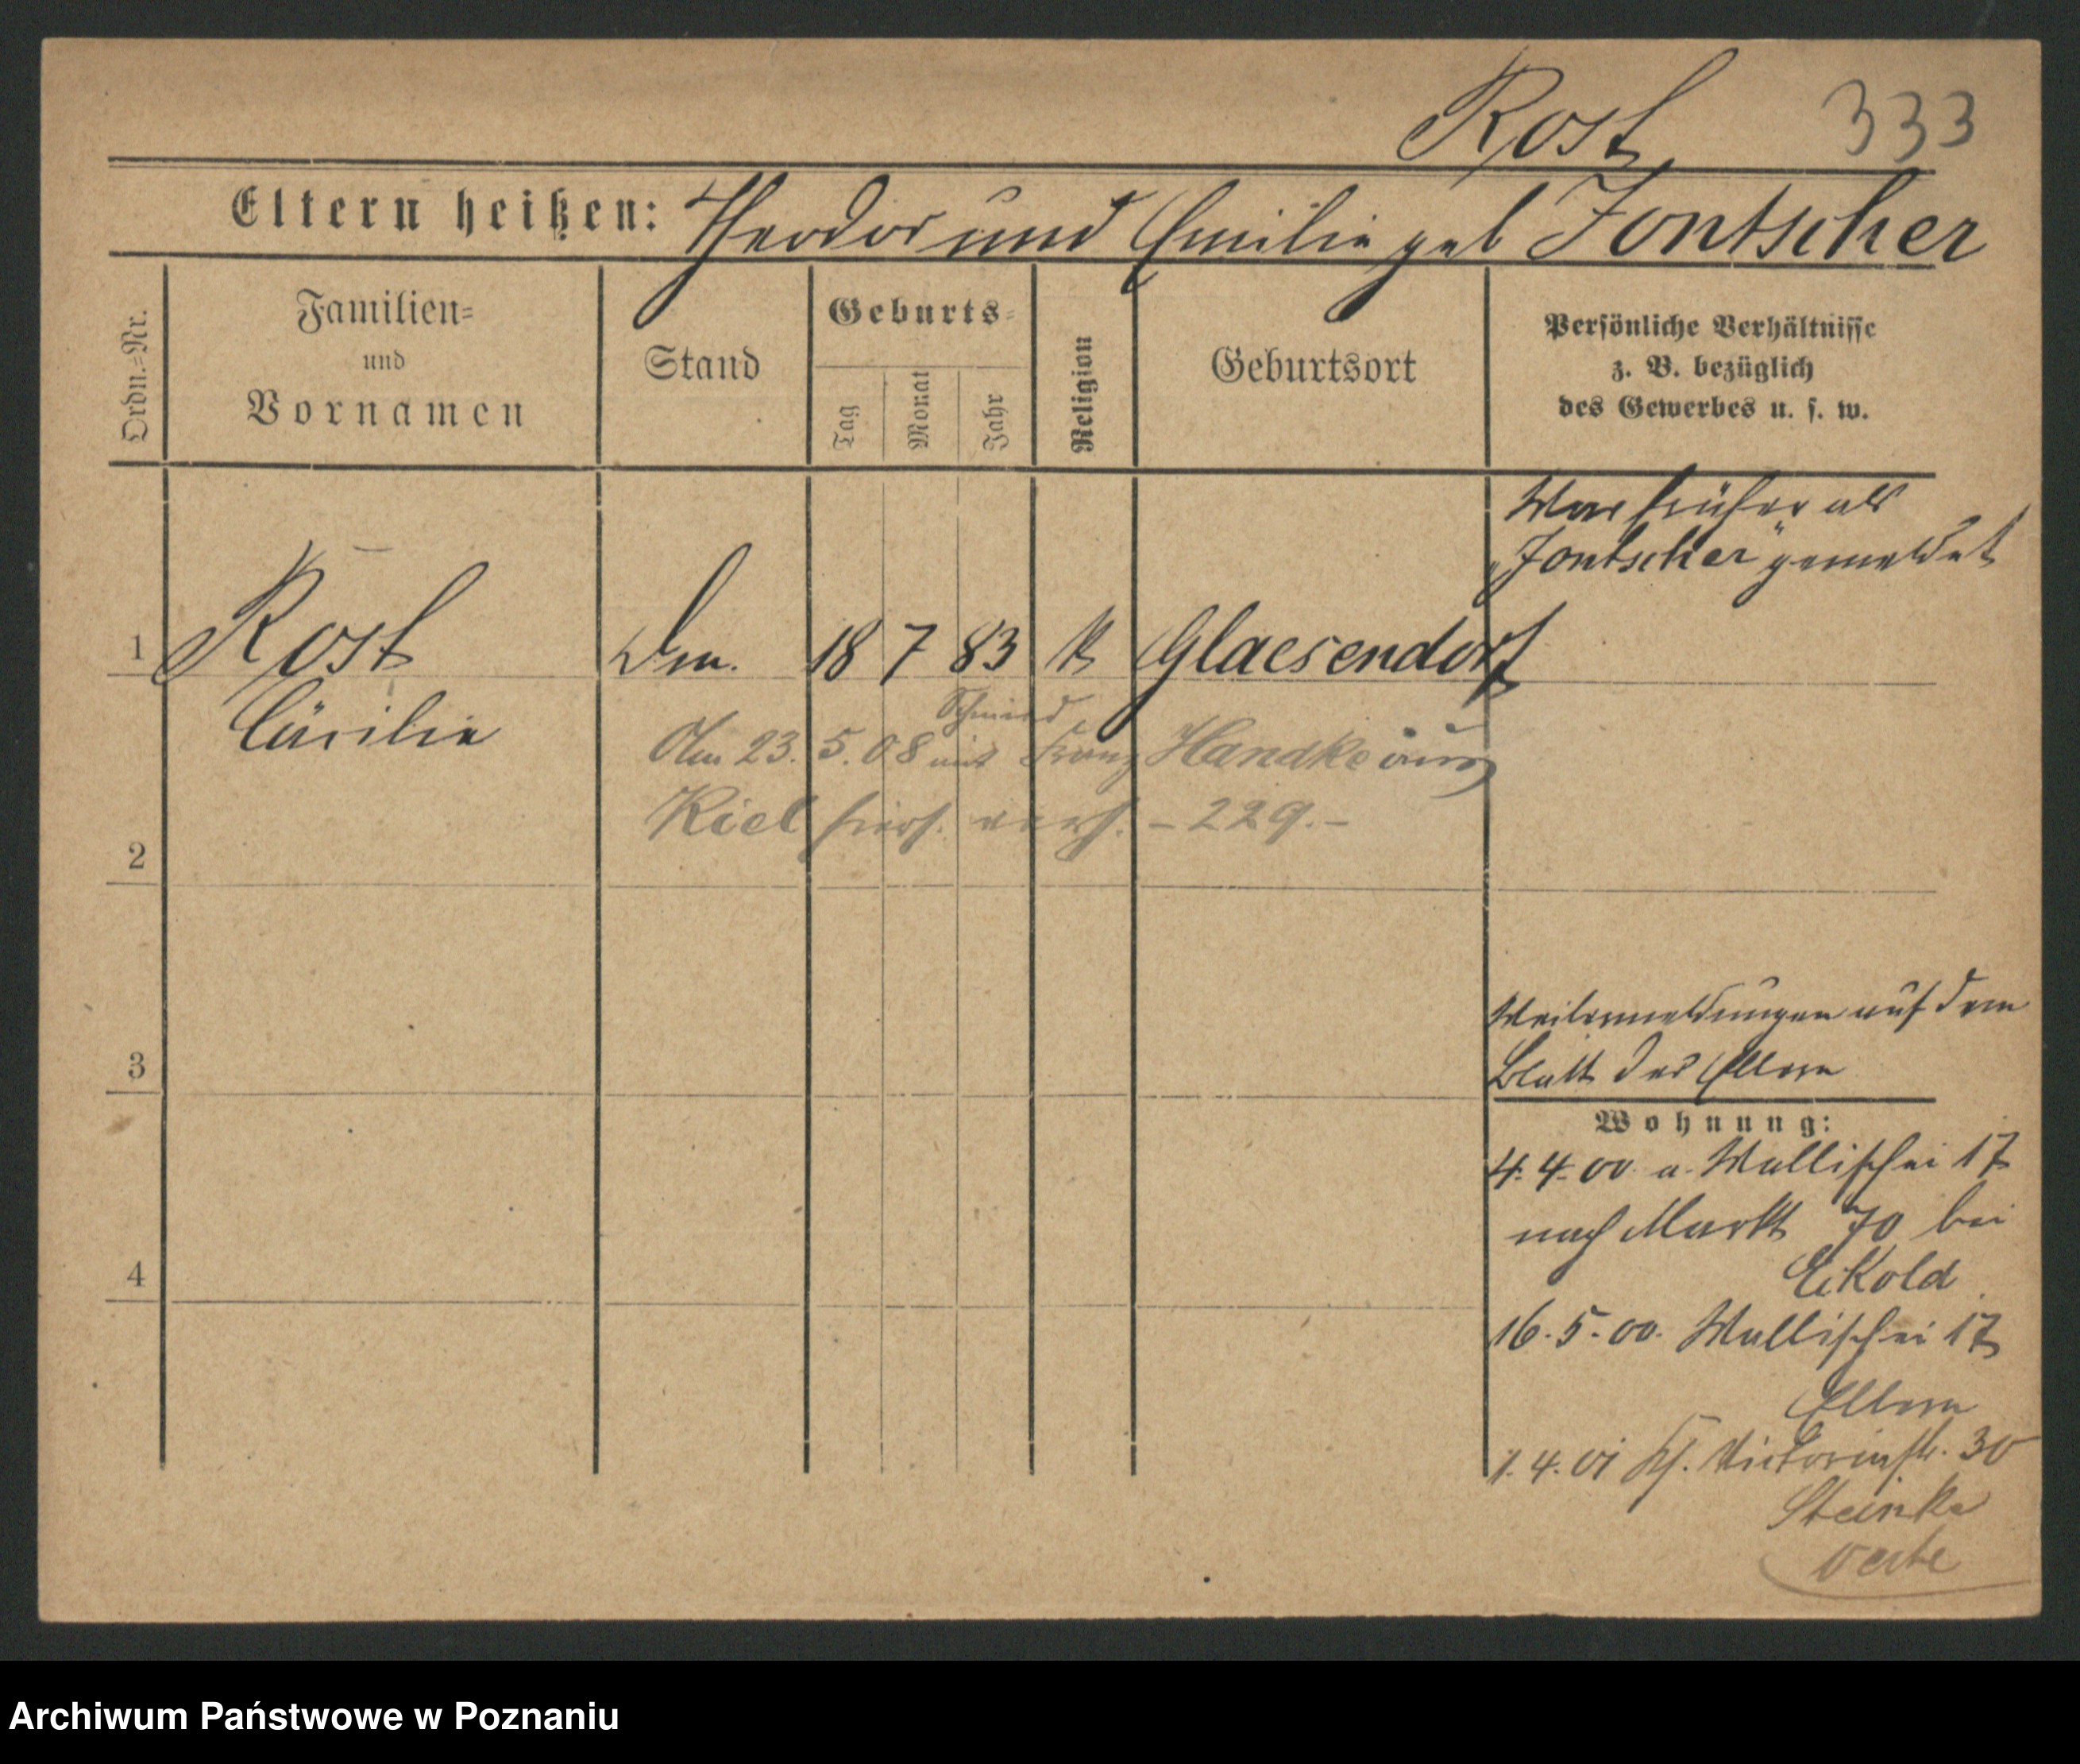 Rost 333
Eltern heißen: Theodor und Emilie geb Jontscher
Ordn.=Nr.
Familien=
und
Vornamen
Stand
Geburts=
Tag
Monat
Jahr
Religion
Geburtsort
Persönliche Verhältnisse
z. B. bezüglich
des Gewerbes u. s. w.
War früher als
„Jontscher" gemeldet
1 Rost 18 7 83 K Glaesendorf
Cäcilie
Schmied
Am 23. 5. 08 mit Franz Handke aus
Kiel hier - 229. -
2
3
4
Weitermeldungen auf dem
Blatt der Eltern
Wohnung:
4. 4. 00. a. Wallischei 17
nach Markt 70 bei
16. 5. 00. Wallischei 17
Eltern
1. 4. 01 Victoriastr. 30
Steinke